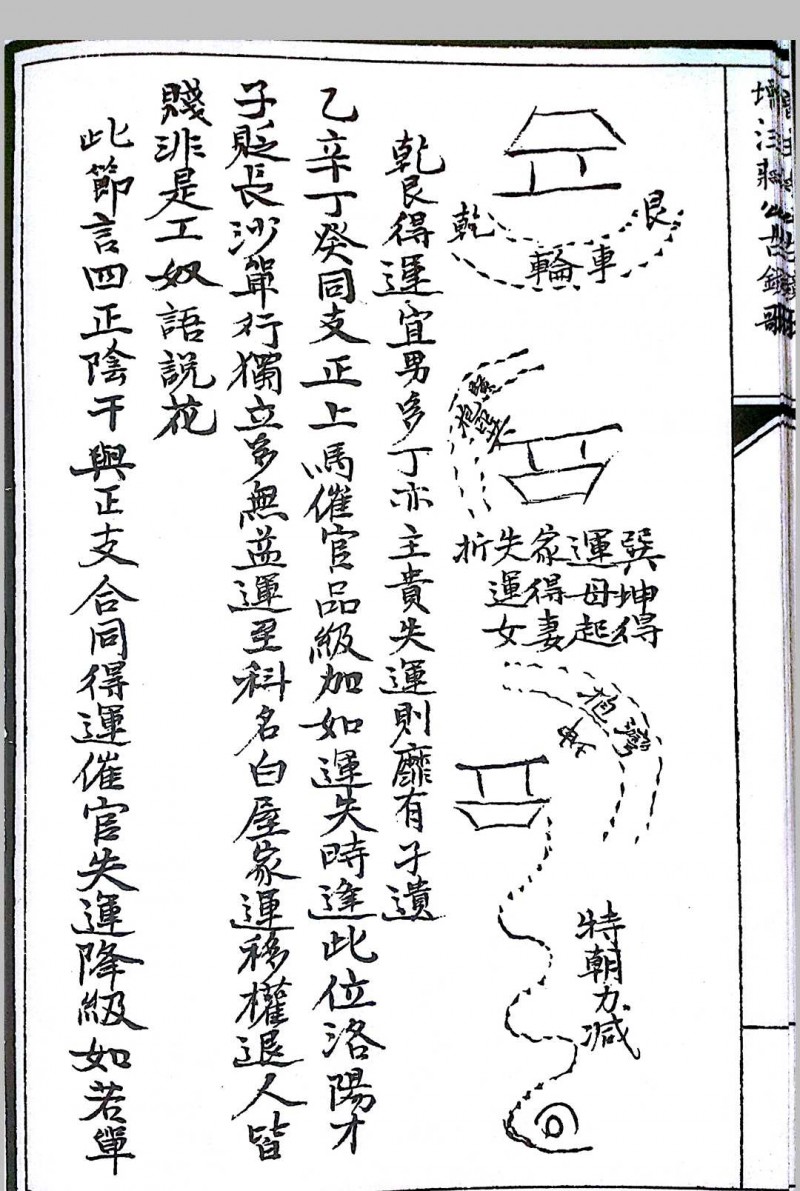 乾
艮
車輪
巽坤得
運母起
家得妻
失運女
折
抱
特朝力減
乾艮得運宜男多丁亦主貴失運則靡有孑遺
乙辛丁癸同支正上馬催官品級加如運失時逢此位洛陽才
子貶長沙單行獨立多無益運至科名白屋家運移權退人皆
賤非是工奴語說花
此節言四正陰干與正支合同得運催官失運降級如若單